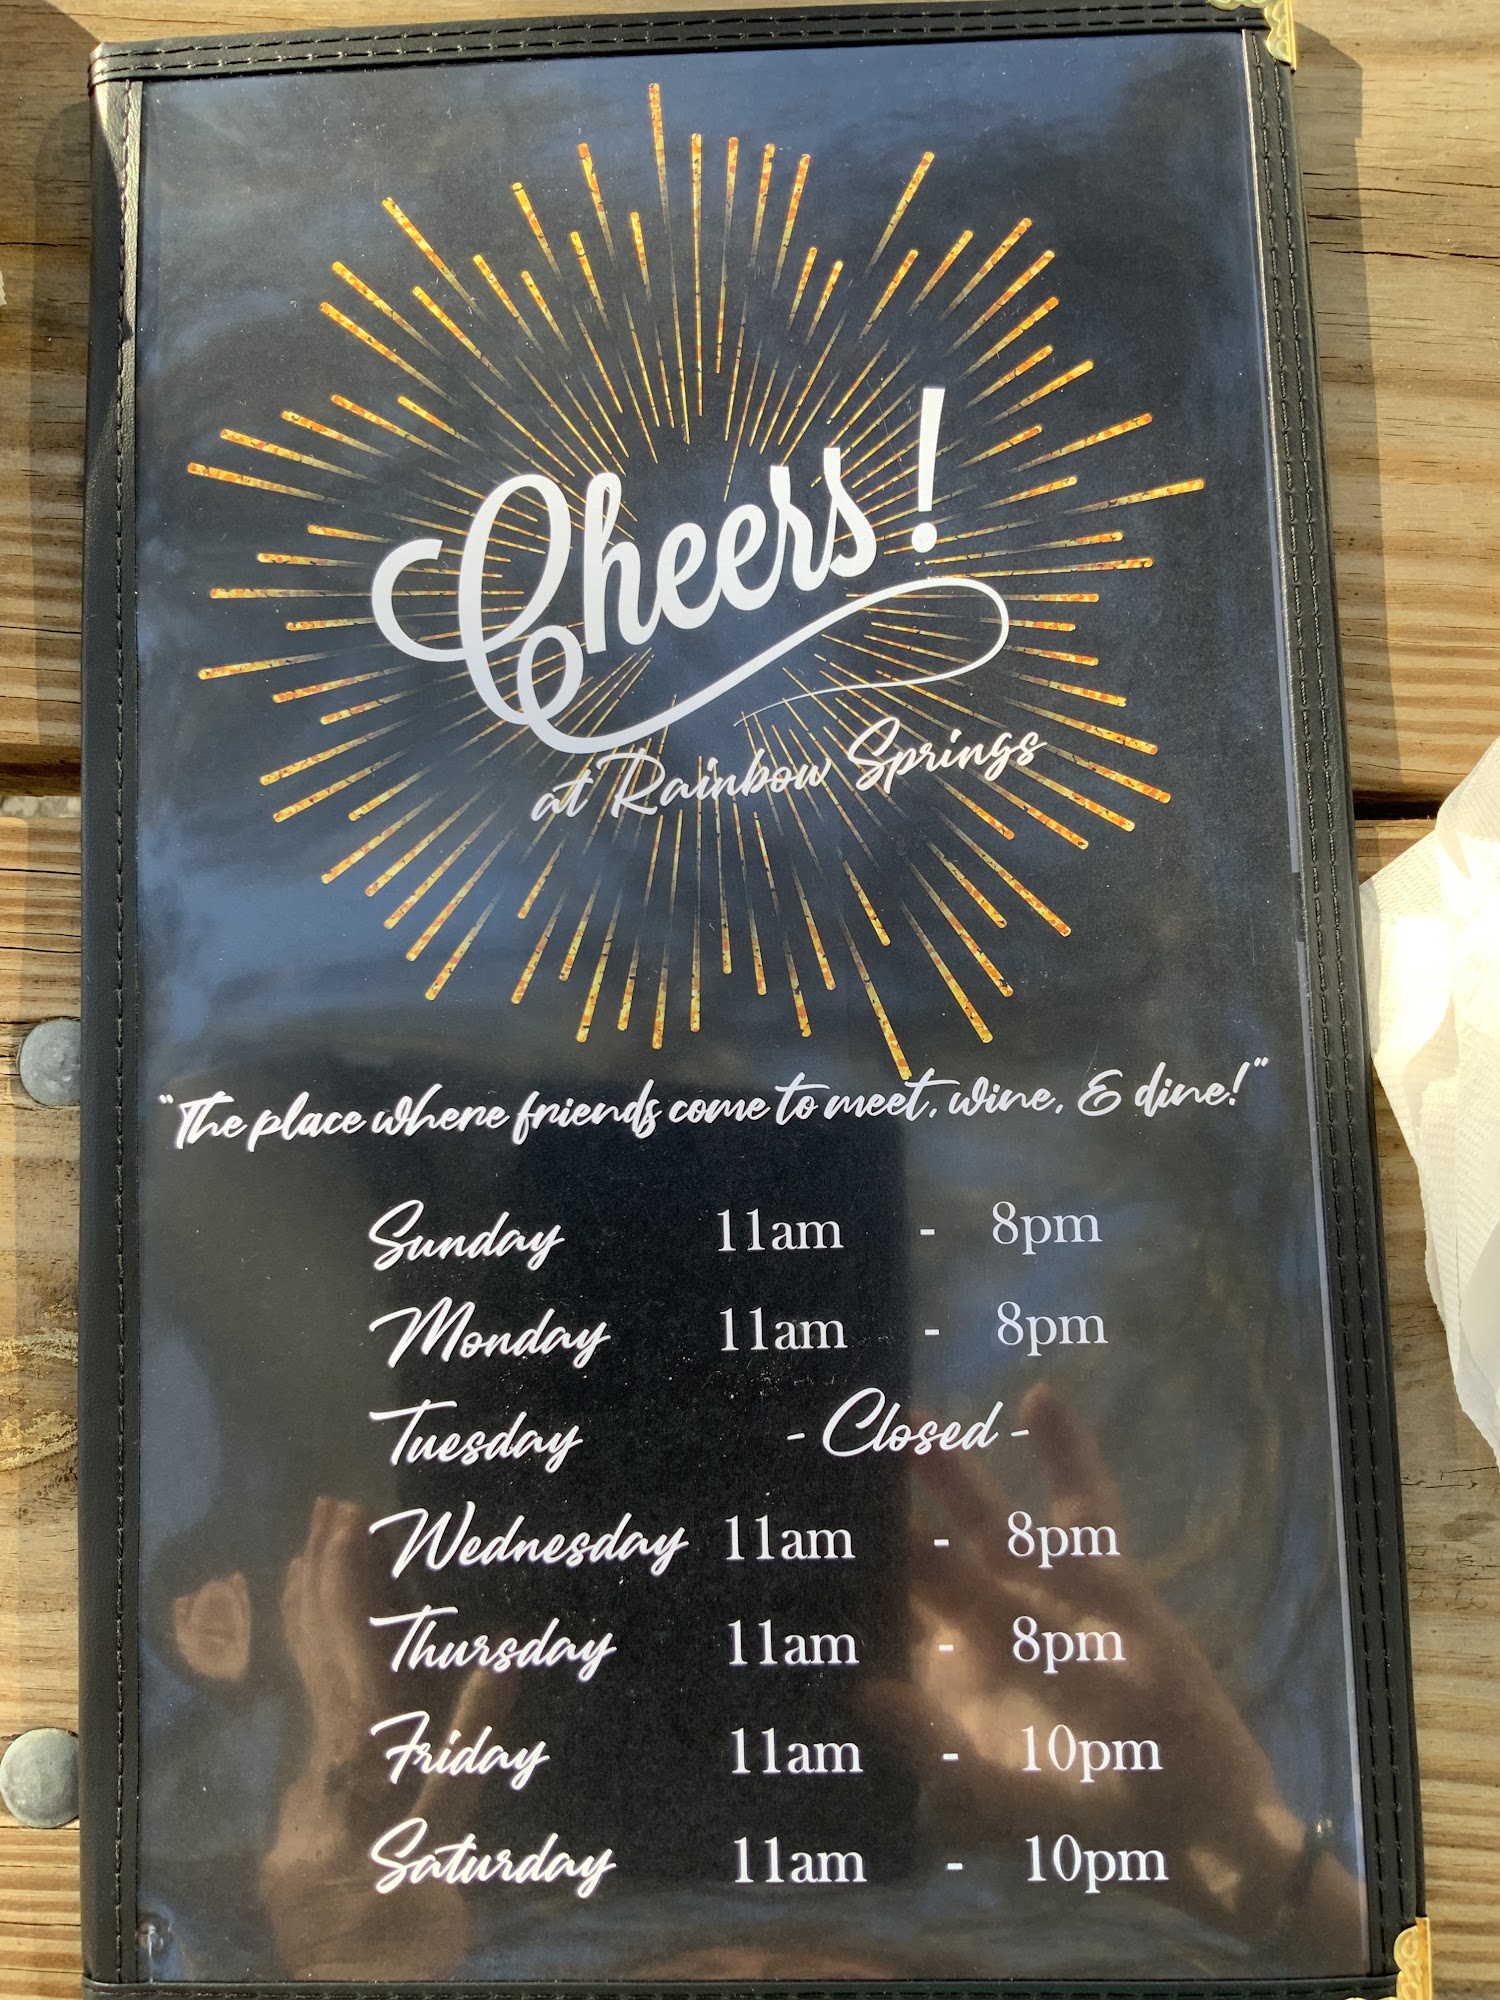 Cheers!
at Rainbow Springs
"The place where friends come to meet, wine, & dine!"
Sunday 11am - 8pm
Monday 11am - 8pm
Tuesday - Closed -
Wednesday 11am - 8pm
Thursday 11am - 8pm
Friday 11am - 10pm
Saturday 11am - 10pm